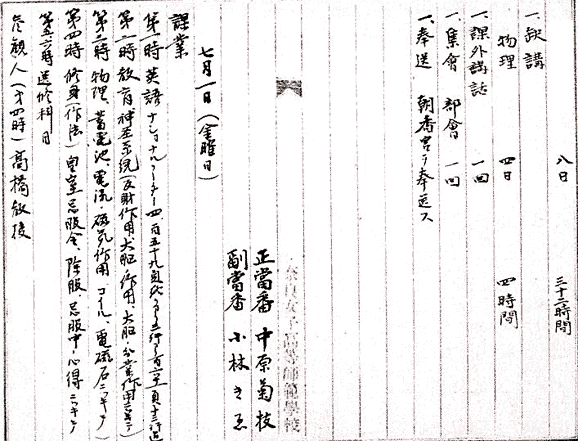 八日 三十二時間
一、欠講
物理 四日 四時間
一、課外講話 一回
一、集會 部會 一回
一、奉送 朝香宮ヲ奉送ス
奈良女子高等師範學校
正當番 中原菊枝
副當番 小林きゑ
七月一日(金曜日)
課業
第一時 英語 ナショナルリーダー四 百五十九頁
第二時 教育 神経系統(反射作用、大脳ノ作用、大脳ノ分業作用
第三時 物理、蓄電池、電流ノ磁気作用 コイル、電磁石ニツキテ
第四時 修身(作法) 皇室忌服令、除服、忌服中ノ心得ニツキテ
第五六時 選修科目
参観人(第四時) 高橋教授